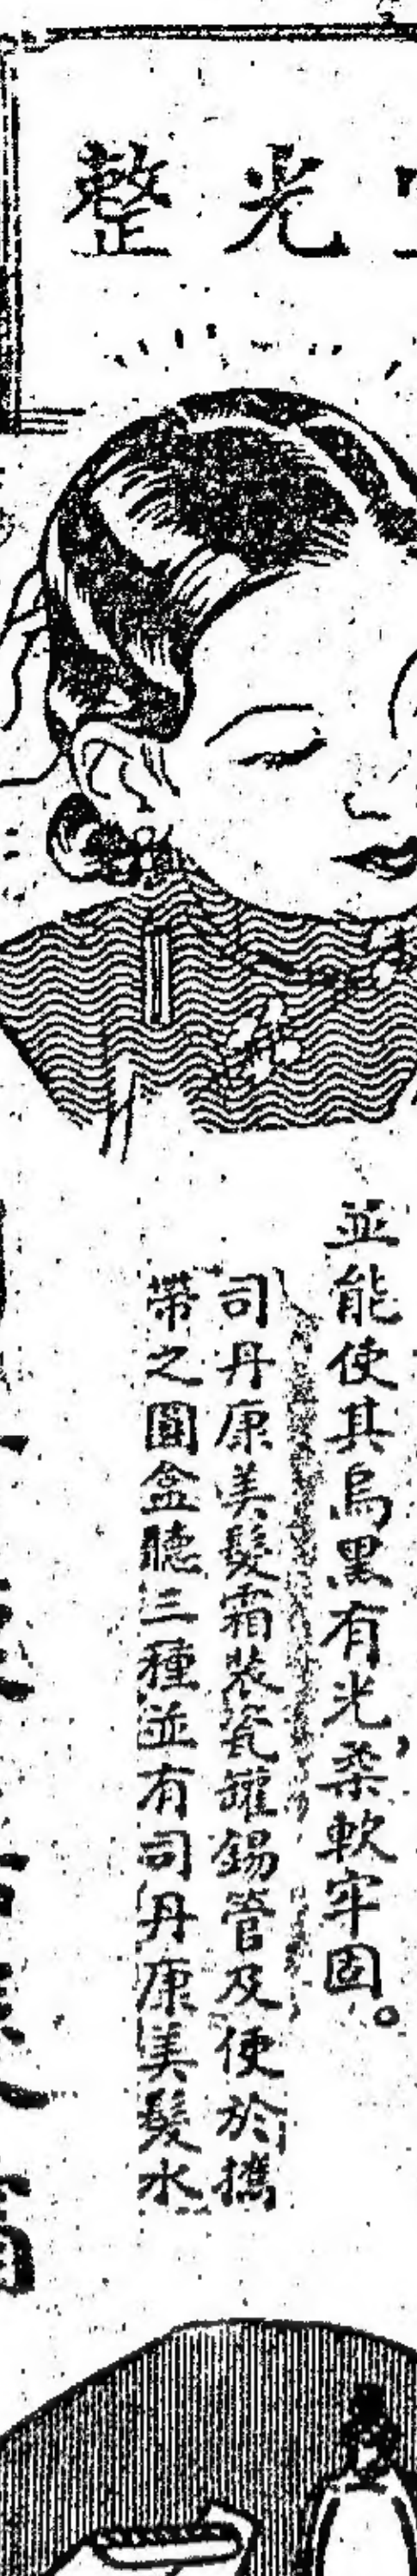 光整
並能使其烏黑有光，柔軟牢固。
司丹康美髮霜裝瓷罐錫管及便於攜
帶之圓盒聽三種並有司丹康美髮水